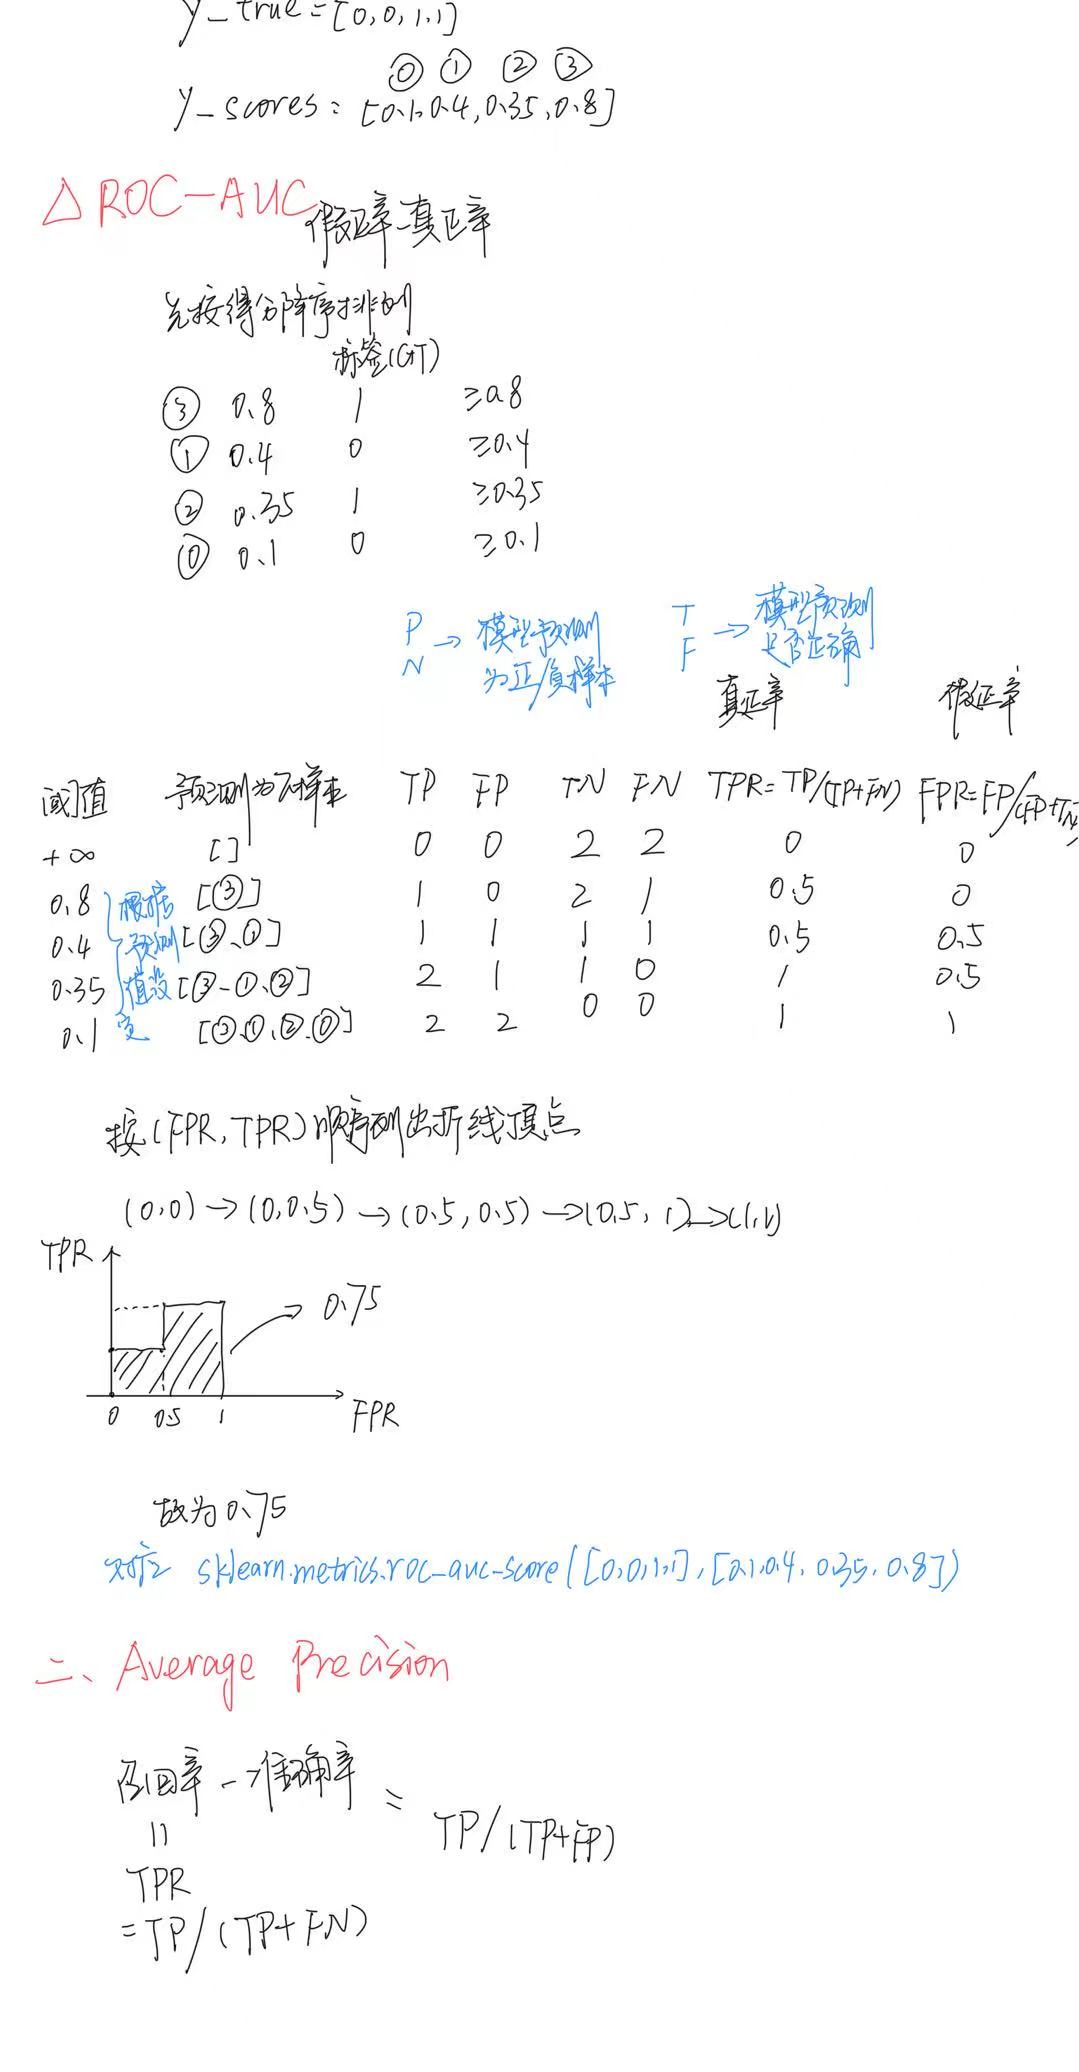 y_true=[0,0,1,1]
⓪ ① ② ③
y_scores: [0.1,0.4,0.35,0.8]
△ ROC-AUC
假正率-真正率
先按得分降序排列
标签(GT)
③ 0.8 1 ≥0.8
① 0.4 0 ≥0.4
② 0.35 1 ≥0.35
⓪ 0.1 0 ≥0.1
P
N → 模型预测
为正/负样本
T
F → 模型预测
是否正确
真正率 假正率
阈值 预测为正样本 TP FP TN FN TPR=TP/(TP+FN) FPR=FP/(FP+TN)
+∞ [] 0 0 2 2 0 0
0.8 [③] 1 0 2 1 0.5 0
0.4 [③、①] 1 1 1 1 0.5 0.5
0.35 [③、①、②] 2 1 1 0 1 0.5
0.1 [③、①、②、⓪] 2 2 0 0 1 1
根据
预测
值设
定
按(FPR,TPR)顺序列出折线顶点
(0,0)→(0,0.5)→(0.5,0.5)→(0.5,1)→(1,1)
TPR
0.75
0 0.5 1 FPR
故为0.75
对应 sklearn.metrics.roc_auc_score([0,0,1,1],[0.1,0.4,0.35,0.8])
二、Average Precision
召回率→准确率 = TP/(TP+FP)
||
TPR
=TP/(TP+FN)